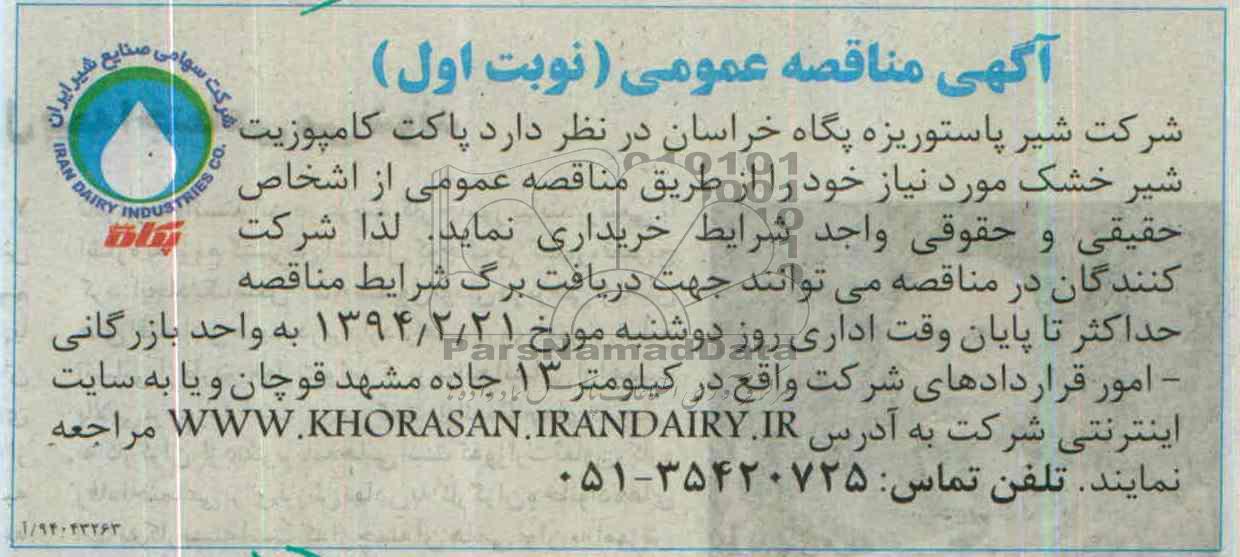 آگهی مناقصه عمومی (نوبت اول)
شرکت سهامی صنایع شیر ایران
IRAN DAIRY INDUSTRIES CO.
پگاه
شرکت شیر پاستوریزه پگاه خراسان در نظر دارد پاکت کامپوزیت
شیر خشک مورد نیاز خود را از طریق مناقصه عمومی از اشخاص
حقیقی و حقوقی واجد شرایط خریداری نماید. لذا شرکت
کنندگان در مناقصه می توانند جهت دریافت برگ شرایط مناقصه
حداکثر تا پایان وقت اداری روز دوشنبه مورخ ۱۳۹۴/۲/۲۱ به واحد بازرگانی
- امور قراردادهای شرکت واقع در کیلومتر ۱۳ جاده مشهد قوچان و یا به سایت
اینترنتی شرکت به آدرس WWW.KHORASAN.IRANDAIRY.IR مراجعه
نمایند. تلفن تماس: ۳۵۴۲۰۷۲۵-۰۵۱
۹۴۰۴۳۲۶۳/آ
ParsNamadData